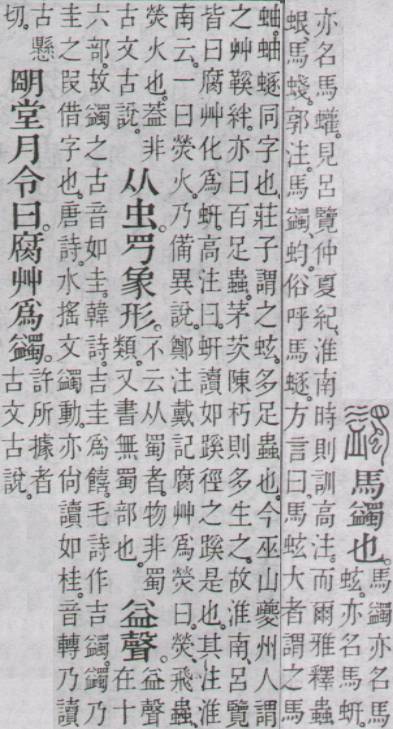 馬蠲也。
馬蠲亦名馬
蚿。亦名馬蚈。
亦名馬蠸。見呂覽仲夏紀、淮南時則訓高注。而爾雅釋蟲
蛝馬䗃。郭注。馬蠲、蚐。俗呼馬。方言曰馬蚿大者謂之馬
蚰。蚰同字也。莊子謂之蚿。多足蟲也。今巫山夔州人謂
之艸鞵絆。亦曰百足蟲。茅茨陳朽則多生之。故淮南、呂覽
皆曰腐艸化爲蚈。高注曰。蚈讀如蹊徑之蹊是也。其注淮
南云。一曰熒火。乃備異說。鄭注戴記腐艸爲熒曰。熒、飛蟲。
熒火也。葢非
古文古說。
从虫。罒象形。
不云从蜀者。物非蜀
類。又書無蜀部也。
益聲。
益聲
在十
六部。故蠲之古音如圭。韓詩。吉圭爲饎。毛詩作吉蠲。蠲乃
圭之叚借字也。唐詩。水搖文蠲動。亦尙讀如桂。音轉乃讀
古懸
切。
朙堂月令曰。腐艸爲蠲。
許所據者
古文古說。